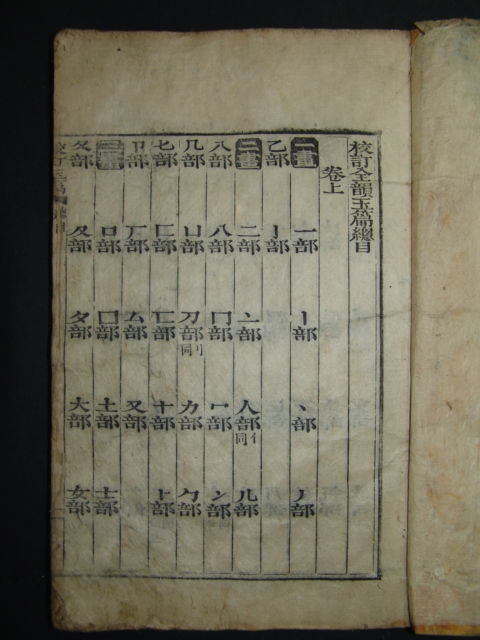 校訂全韻玉篇總目
卷上
一畫 一部 丨部 丶部 丿部
乙部 亅部
二畫 二部 亠部 人部 亻同 儿部
入部 八部 冂部 冖部 冫部
几部 凵部 刀部 刂同 力部 勹部
匕部 匚部 匸部 十部 卜部
卩部 厂部 厶部 又部
三畫 口部 囗部 土部 士部
夂部 夊部 夕部 大部 女部